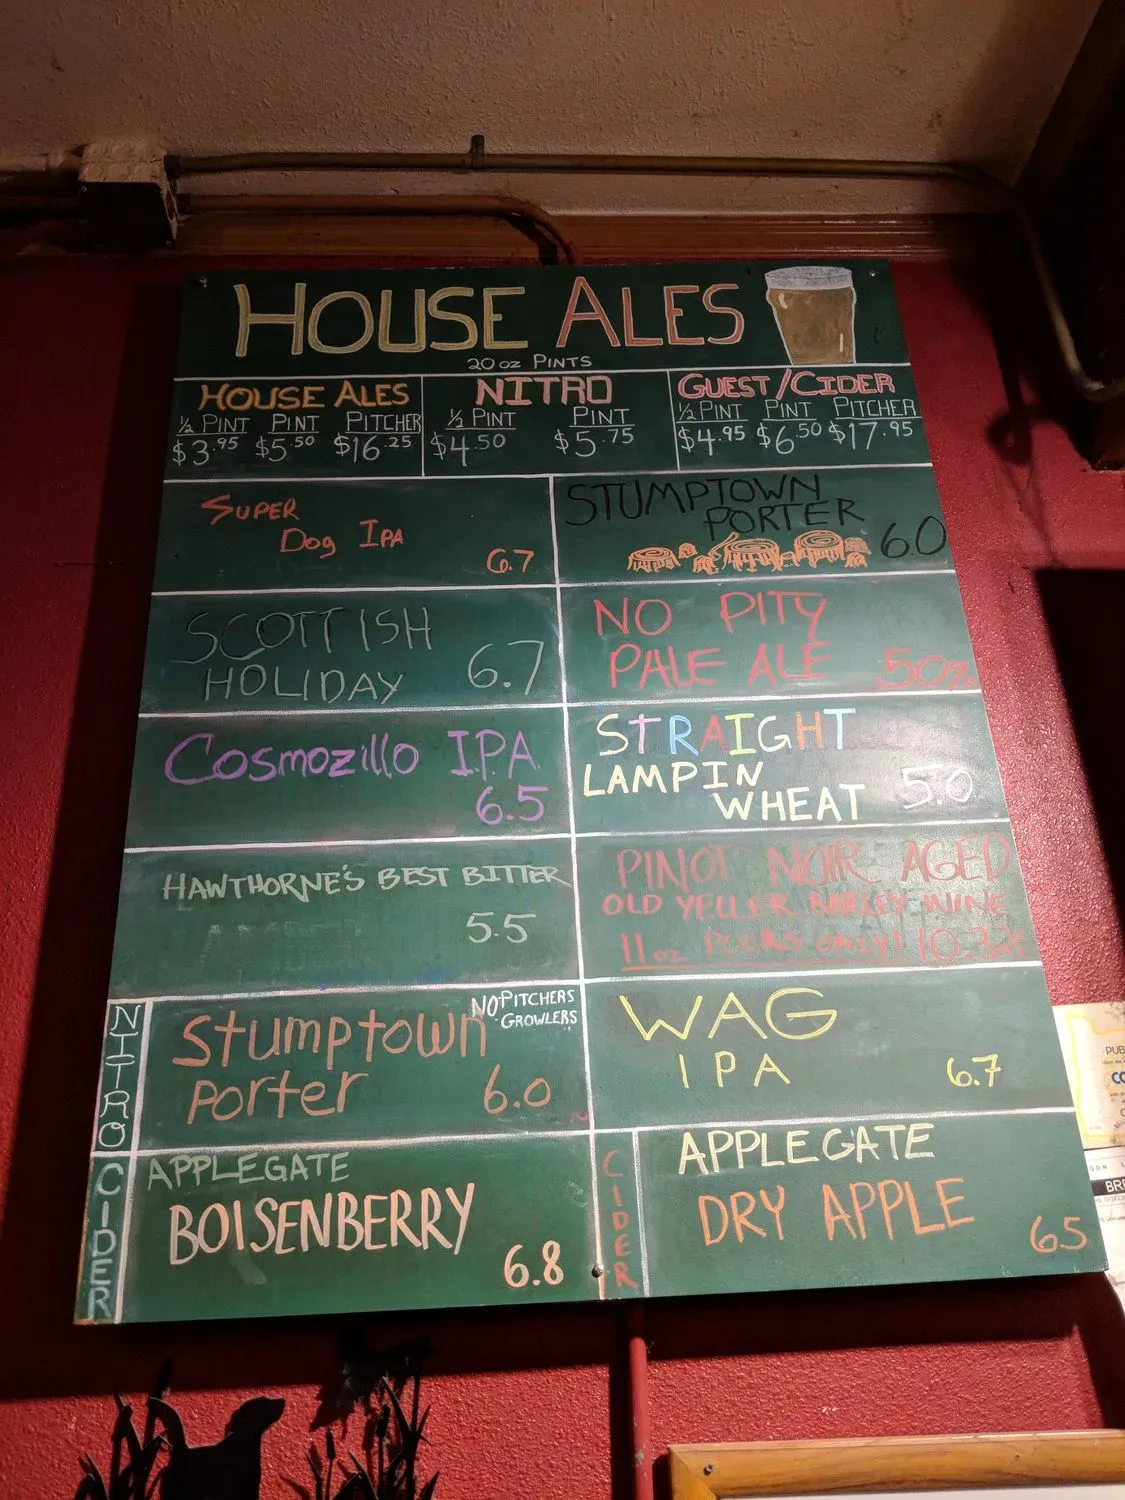 HOUSE ALES
20 oz PINTS
HOUSE ALES
½ PINT PINT PITCHER
$3.95 $5.50 $16.25
NITRO
½ PINT PINT
$4.50 $5.75
GUEST/CIDER
½ PINT PINT PITCHER
$4.95 $6.50 $17.95
SUPER
DOG IPA
6.7
STUMPTOWN
PORTER
6.0
SCOTTISH
HOLIDAY 6.7
NO PITY
PALE ALE 5.0%
COSMOZILLO IPA
6.5
STRAIGHT
LAMPIN
WHEAT 5.0
HAWTHORNE'S BEST BITTER
5.5
PINOT NOIR AGED
OLD YELLER BARLEY WINE
11oz POURS ONLY! 10.3
NITRO
NO PITCHERS
GROWLERS
Stumptown
Porter 6.0
WAG
IPA 6.7
CIDER
APPLEGATE
BOISENBERRY
6.8
CIDER
APPLEGATE
DRY APPLE
6.5
PUB
BRE